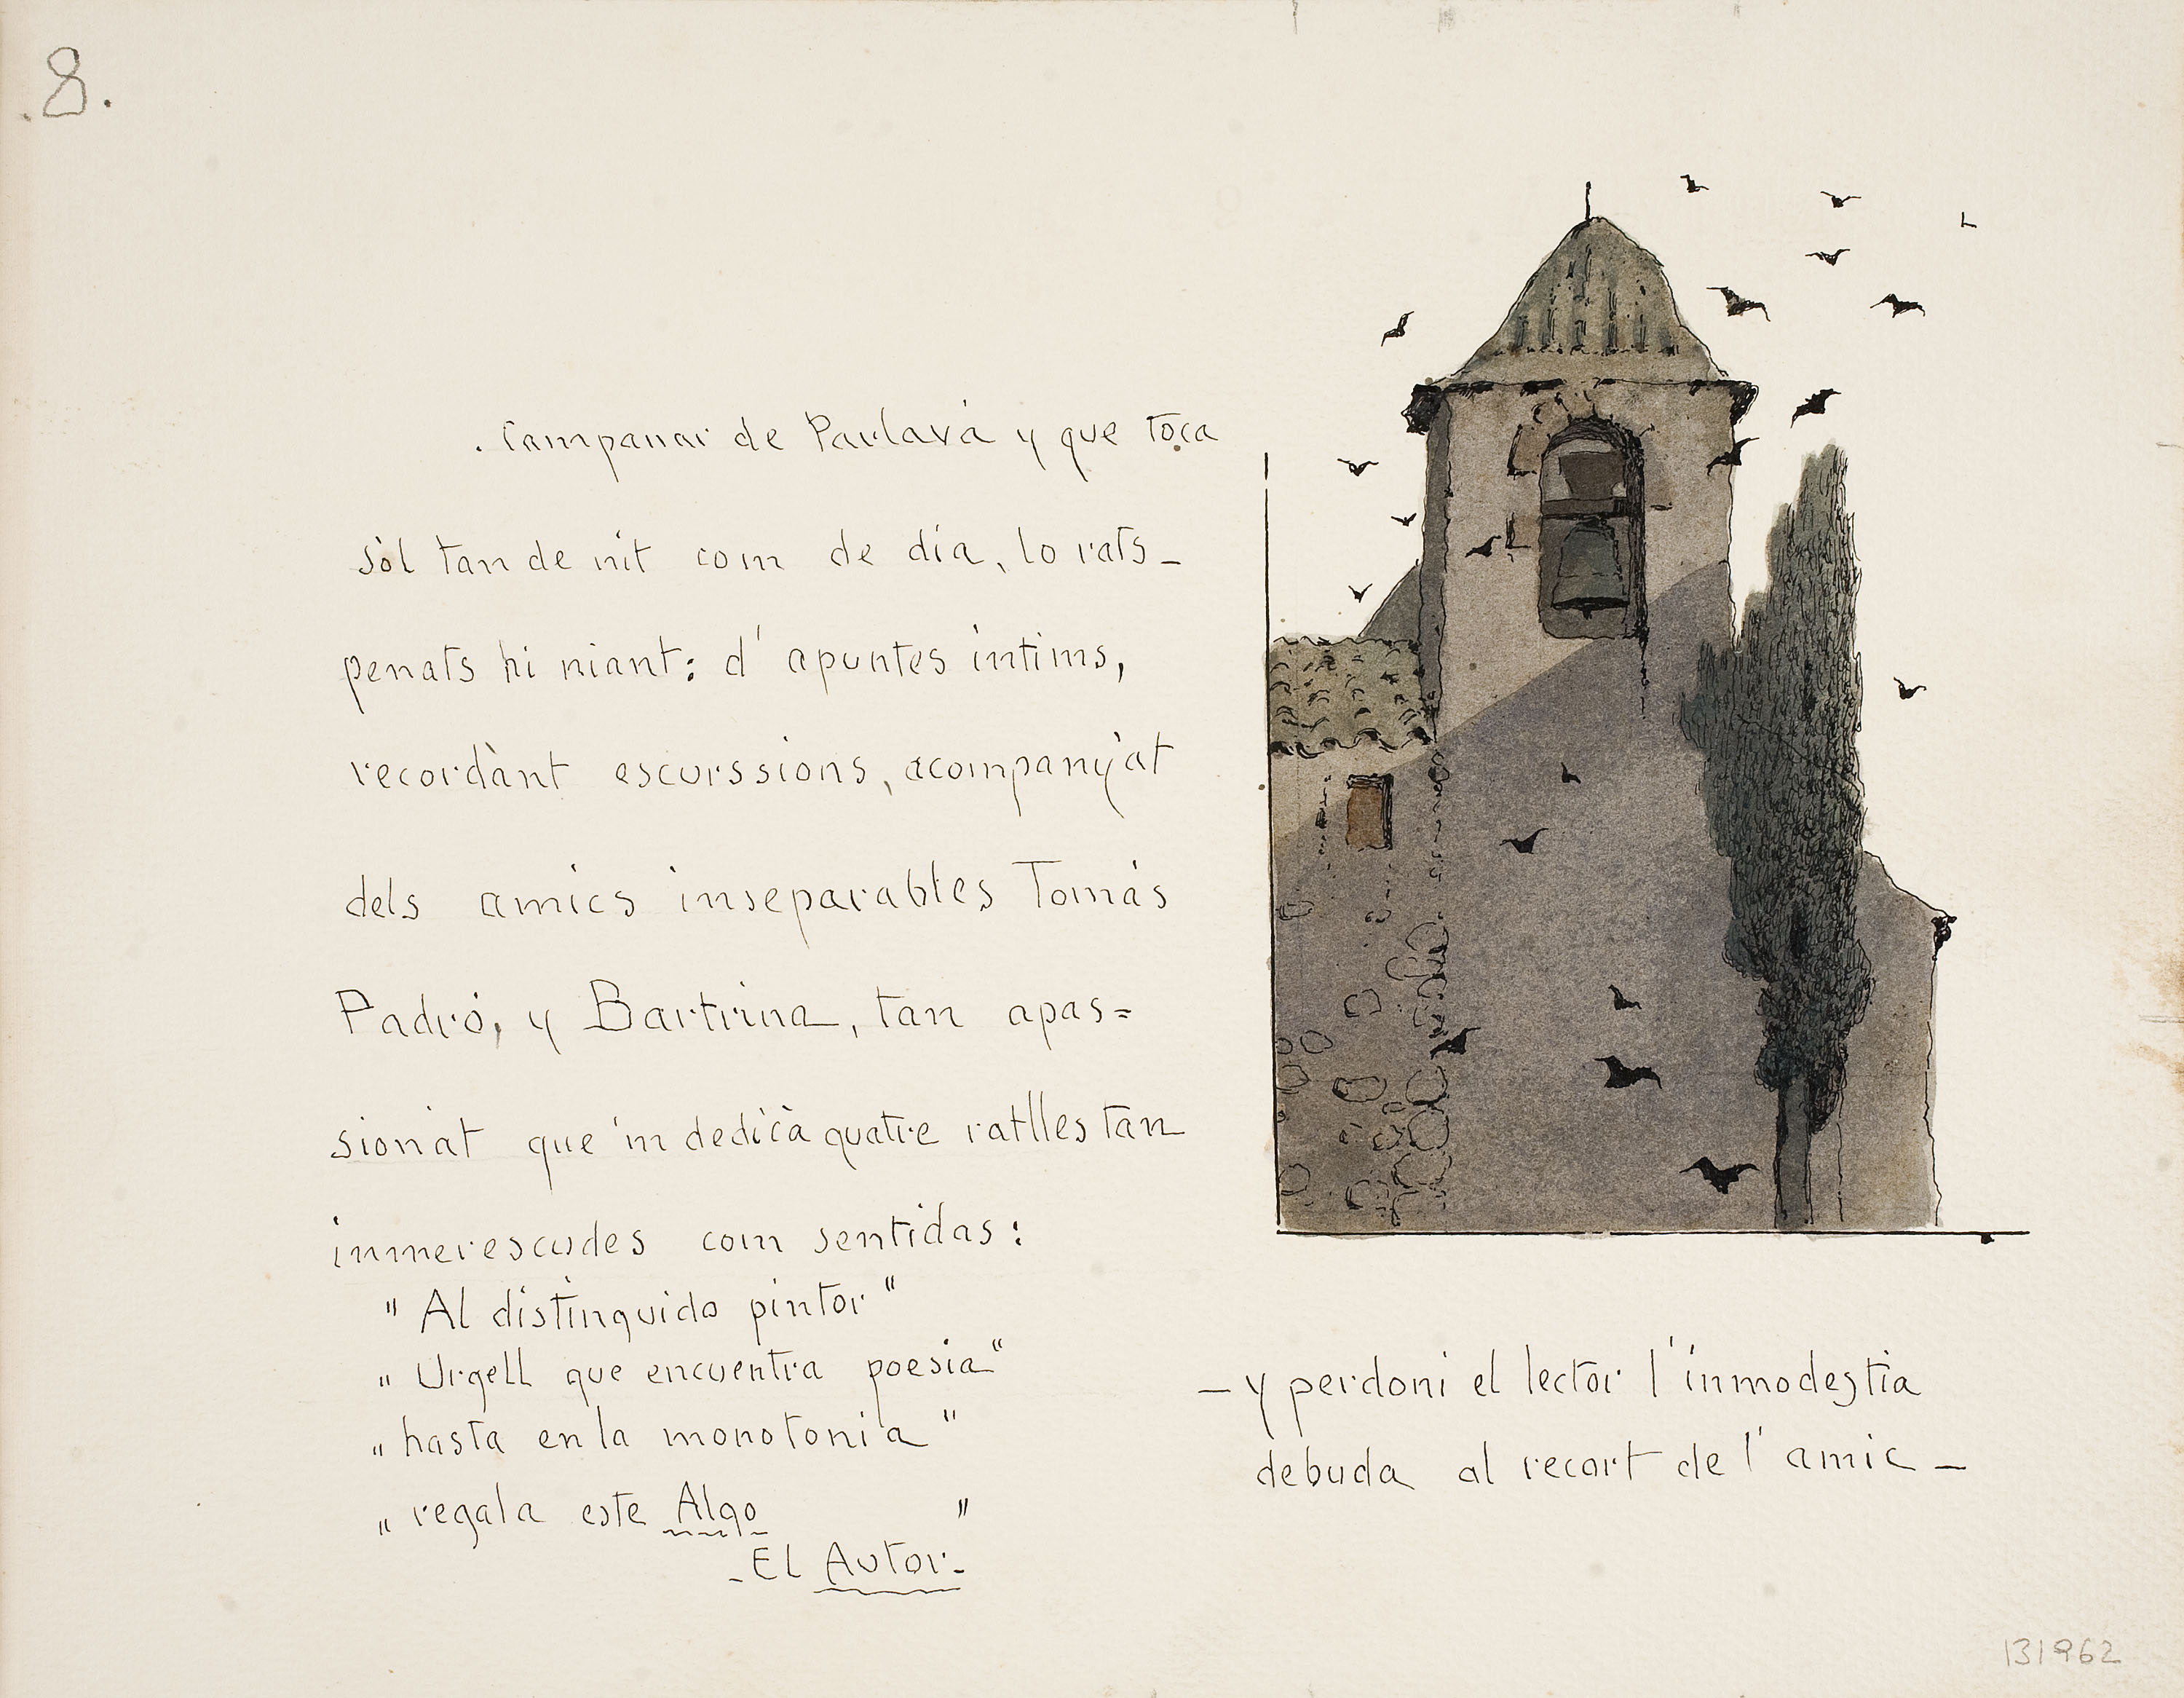 .8.
. Campanar de Parlavà y que toca
sòl tan de nit com de dia, lo rats-
penats hi niant: d' apuntes intims,
recordànt escurssions, acompanyàt
dels amics inseparables Tomás
Padró, y Bartrina, tan apas=
sionat que 'm dedicà quatre ratlles tan
inmerescudes com sentidas:
" Al distinguido pintor "
" Urgell que encuentra poesia "
" hasta en la monotonia "
" regala este Algo "
- El Autor -
- y perdoni el lector l' inmodestia
debuda al recort de l' amic -
131962